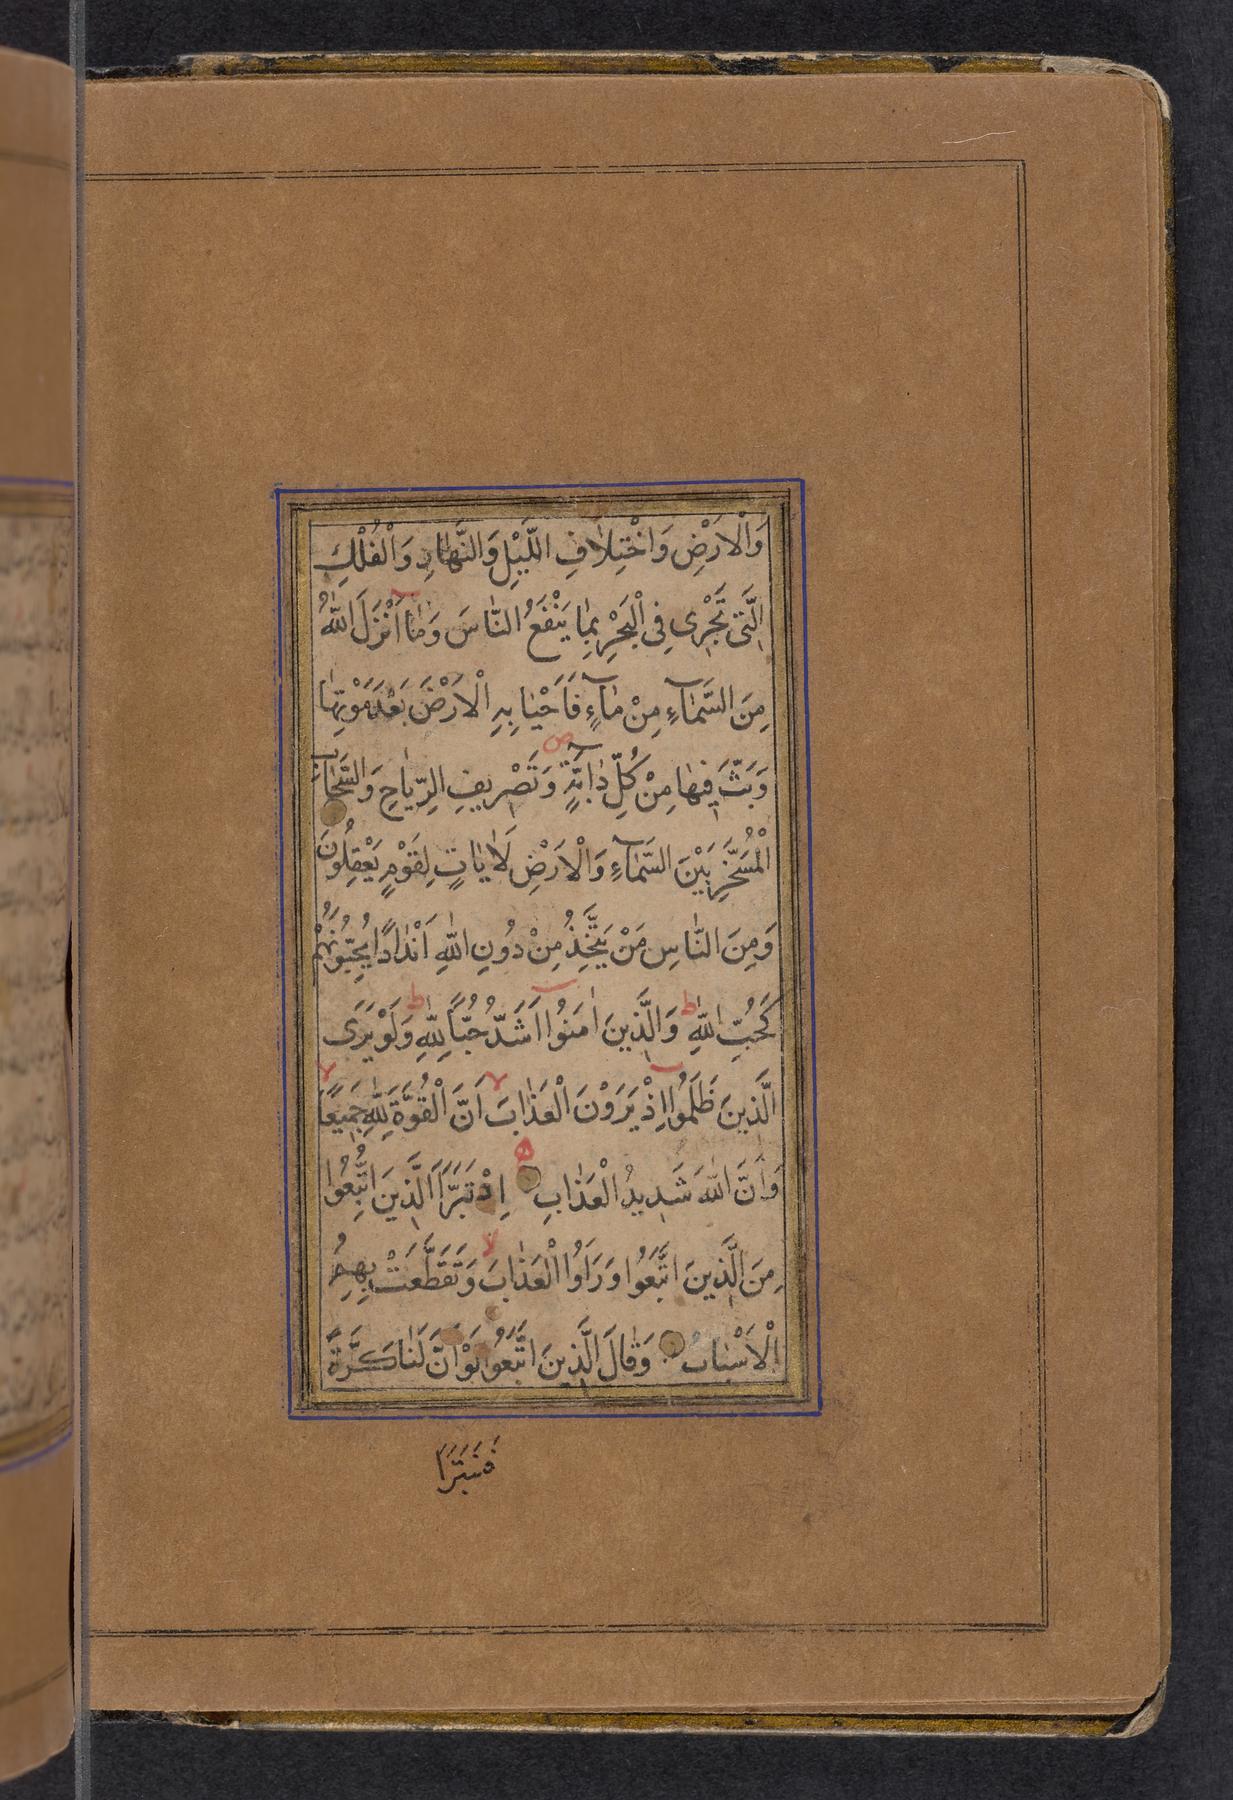 وَالْاَرْضِ وَاخْتِلَافِ اللَّيْلِ وَالنَّهَارِ وَالْفُلْكِ
الَّتِى تَجْرِى فِى الْبَحْرِ بِمَا يَنْفَعُ النَّاسَ وَمَا اَنْزَلَ اللّٰهُ
مِنَ السَّمَآءِ مِنْ مَآءٍ فَاَحْيَا بِهِ الْاَرْضَ بَعْدَ مَوْتِهَا
وَبَثَّ فِيهَا مِنْ كُلِّ دَآبَّةٍ ص وَتَصْرِيفِ الرِّيَاحِ وَالسَّحَابِ
الْمُسَخَّرِ بَيْنَ السَّمَآءِ وَالْاَرْضِ لَاٰيَاتٍ لِقَوْمٍ يَعْقِلُونَ
وَمِنَ النَّاسِ مَنْ يَتَّخِذُ مِنْ دُونِ اللّٰهِ اَنْدَادًا يُحِبُّونَهُمْ
كَحُبِّ اللّٰهِ ط وَالَّذِينَ اٰمَنُوا اَشَدُّ حُبًّا لِلّٰهِ ط وَلَوْ يَرَى
الَّذِينَ ظَلَمُوا اِذْ يَرَوْنَ الْعَذَابَ لا اَنَّ الْقُوَّةَ لِلّٰهِ جَمِيعًا لا
وَاَنَّ اللّٰهَ شَدِيدُ الْعَذَابِ اِذْ تَبَرَّاَ الَّذِينَ اتُّبِعُوا
مِنَ الَّذِينَ اتَّبَعُوا وَرَاَوُا الْعَذَابَ وَتَقَطَّعَتْ بِهِمُ
الْاَسْبَابُ وَقَالَ الَّذِينَ اتَّبَعُوا لَوْ اَنَّ لَنَا كَرَّةً
فَنَتَبَرَّاَ